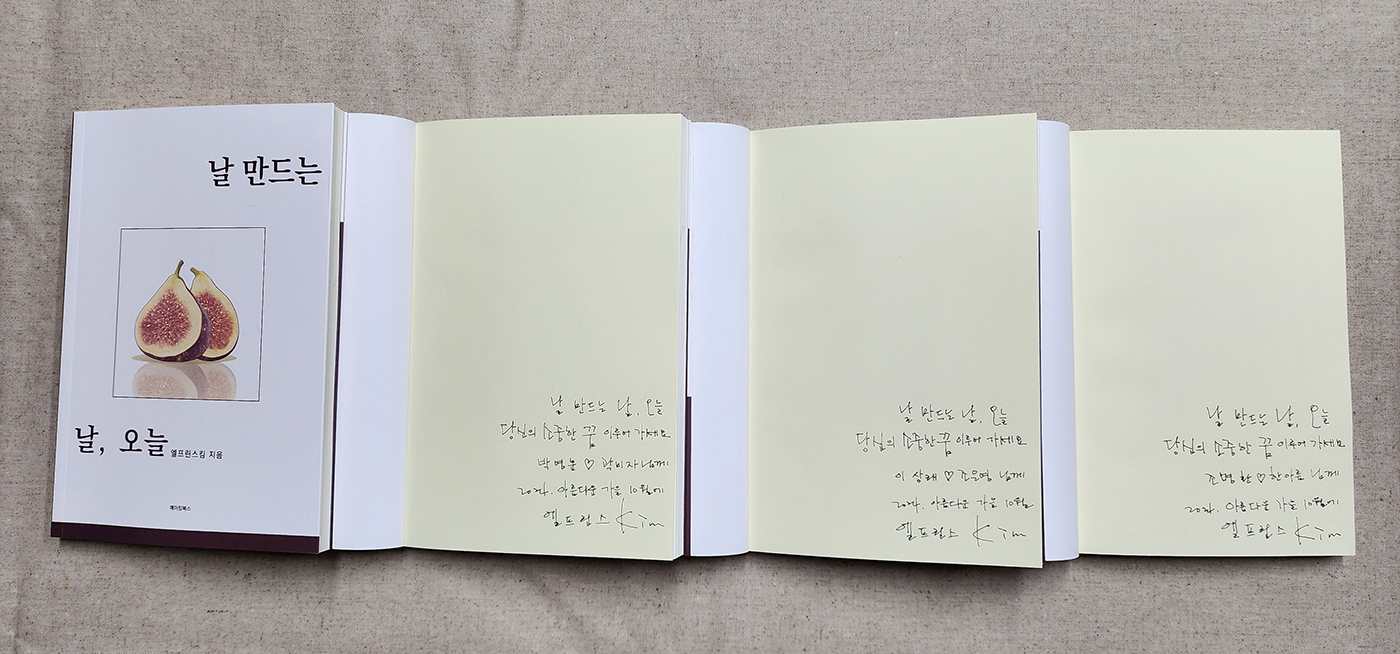 날 만드는
날, 오늘
엘프린스킴 지음
메이킹북스
날 만드는 날, 오늘
당신의 소중한 꿈 이루어 가세요
박명문 ♡ 곽비자 님께
2024. 아름다운 가을 10월에
엘프린스 Kim
날 만드는 날, 오늘
당신의 소중한 꿈 이루어 가세요
이상래 ♡ 조은영 님께
2024. 아름다운 가을 10월에
엘프린스 Kim
날 만드는 날, 오늘
당신의 소중한 꿈 이루어 가세요
조명환 ♡ 한아름 님께
2024. 아름다운 가을 10월에
엘프린스 Kim